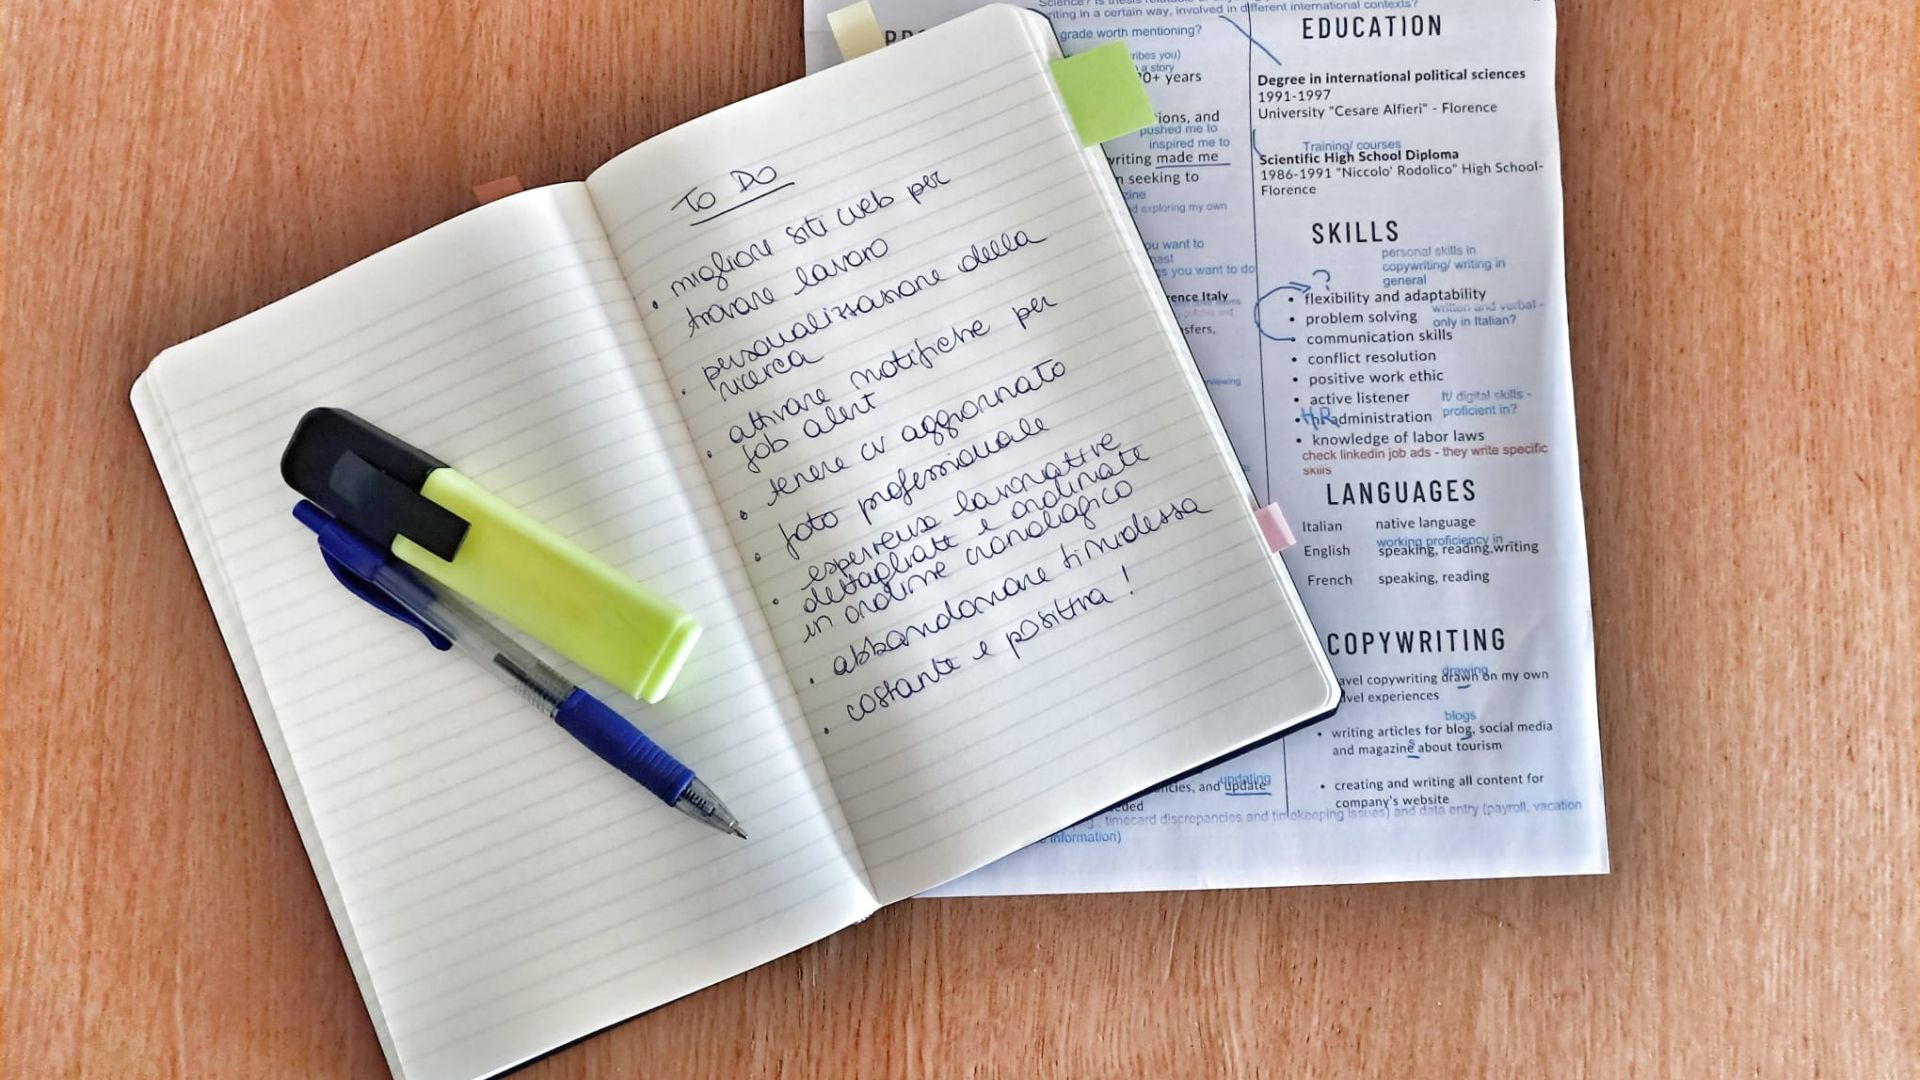 TO DO
• migliori siti web per
trovare lavoro
• personalizzazione della
ricerca
• attivare notifiche per
job alert
• tenere cv aggiornato
• foto professionale
• esperienze lavorative
dettagliate e ordinate
in ordine cronologico
• abbandonare timidezza
• costante e positiva!
writing in a certain way, involved in different international contexts?
grade worth mentioning?
ribes you)
a story
20+ years
ions, and
pushed me to
inspired me to
writing made me
n seeking to
zine
d exploring my own
ou want to
past
s you want to do
rence Italy
sfers,
viewing
ncies, and update
updating
eded
timecard discrepancies and timekeeping issues) and data entry (payroll, vacation
information)
EDUCATION
Degree in international political sciences
1991-1997
University "Cesare Alfieri" - Florence
Training/ courses
Scientific High School Diploma
1986-1991 "Niccolo' Rodolico" High School-
Florence
SKILLS
personal skills in
copywriting/ writing in
general
?
• flexibility and adaptability
• problem solving
written and verbal -
only in Italian?
• communication skills
• conflict resolution
• positive work ethic
• active listener
It/ digital skills -
proficient in?
• HR administration
• knowledge of labor laws
check linkedin job ads - they write specific
skills
LANGUAGES
Italian native language
working proficiency in
English speaking, reading,writing
French speaking, reading
COPYWRITING
drawing
avel copywriting drawn on my own
avel experiences
blogs
• writing articles for blog, social media
and magazine s about tourism
• creating and writing all content for
company's website